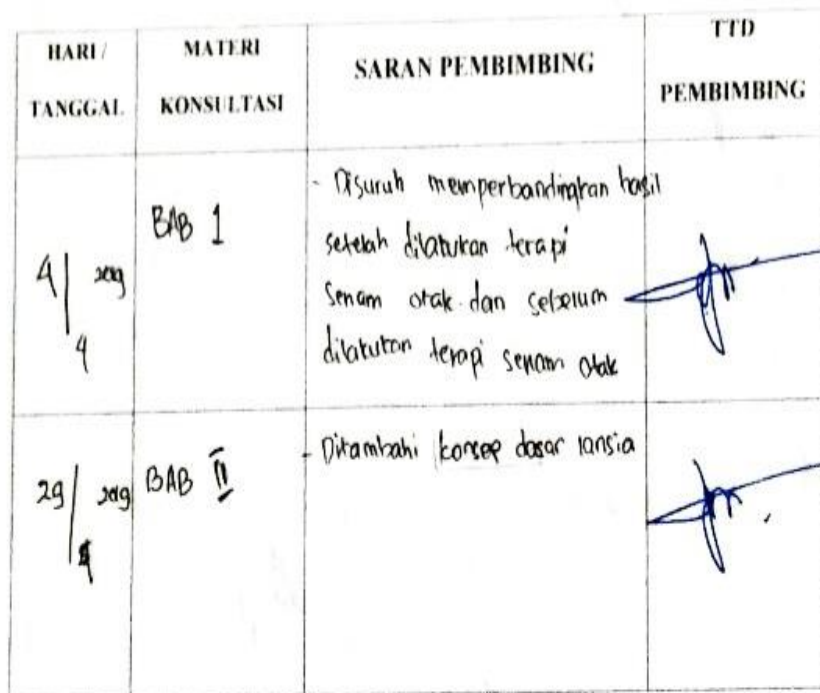 HARI / TANGGAL
MATERI KONSULTASI
SARAN PEMBIMBING
TTD PEMBIMBING
4 / 4 2019
BAB 1
- Disuruh memperbandingkan hasil
setelah dilakukan terapi
senam otak dan sebelum
dilakukan terapi senam otak
29 / 4 2019
BAB II
- Ditambahi konsep dasar lansia